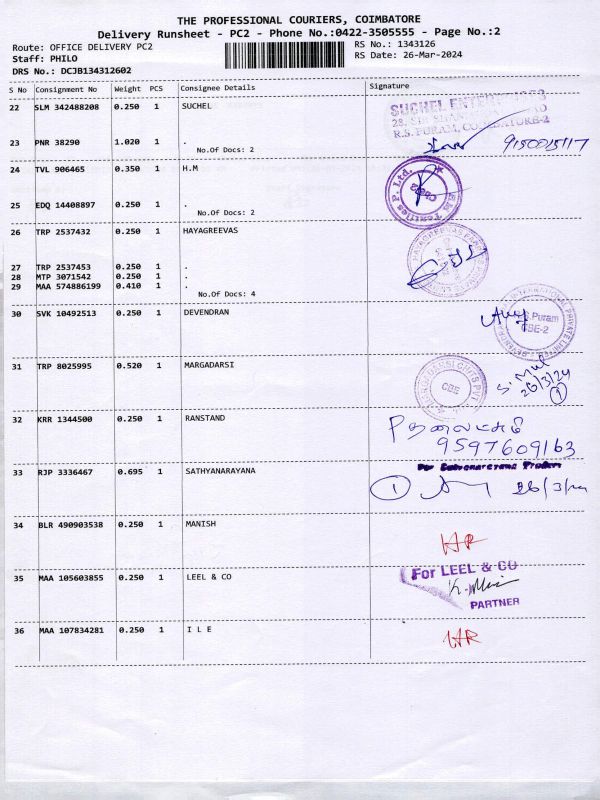 THE PROFESSIONAL COURIERS, COIMBATORE
Delivery Runsheet - PC2 - Phone No.:0422-3505555 - Page No.:2
Route: OFFICE DELIVERY PC2
RS No.: 1343126
Staff: PHILO
RS Date: 26-Mar-2024
DRS No.: DCJB134312602
S No Consignment No Weight PCS Consignee Details Signature
22 SLM 342488208 0.250 1 SUCHEL
SUCHEL
R.S. PURAM,
23 PNR 38290 1.020 1 .
No.Of Docs: 2
24 TVL 906465 0.350 1 H.M
P. Ltd.
25 EDQ 14408897 0.250 1 .
No.Of Docs: 2
26 TRP 2537432 0.250 1 HAYAGREEVAS
27 TRP 2537453 0.250 1 .
28 MTP 3071542 0.250 1 .
29 MAA 574886199 0.410 1 .
No.Of Docs: 4
30 SVK 10492513 0.250 1 DEVENDRAN
INTERNATIONAL PRIVATE
S.Puram
CBE-2
31 TRP 8025995 0.520 1 MARGADARSI
CBE
26/3/24
1
32 KRR 1344500 0.250 1 RANSTAND
9597609163
33 RJP 3336467 0.695 1 SATHYANARAYANA
1
34 BLR 490903538 0.250 1 MANISH
35 MAA 105603855 0.250 1 LEEL & CO
For LEEL & CO
PARTNER
36 MAA 107834281 0.250 1 I L E